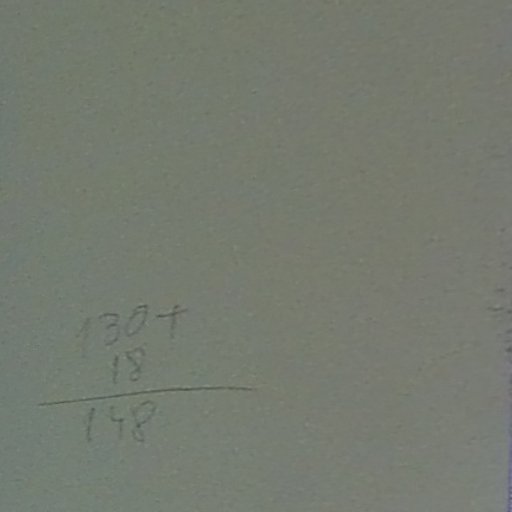 130+
18
148